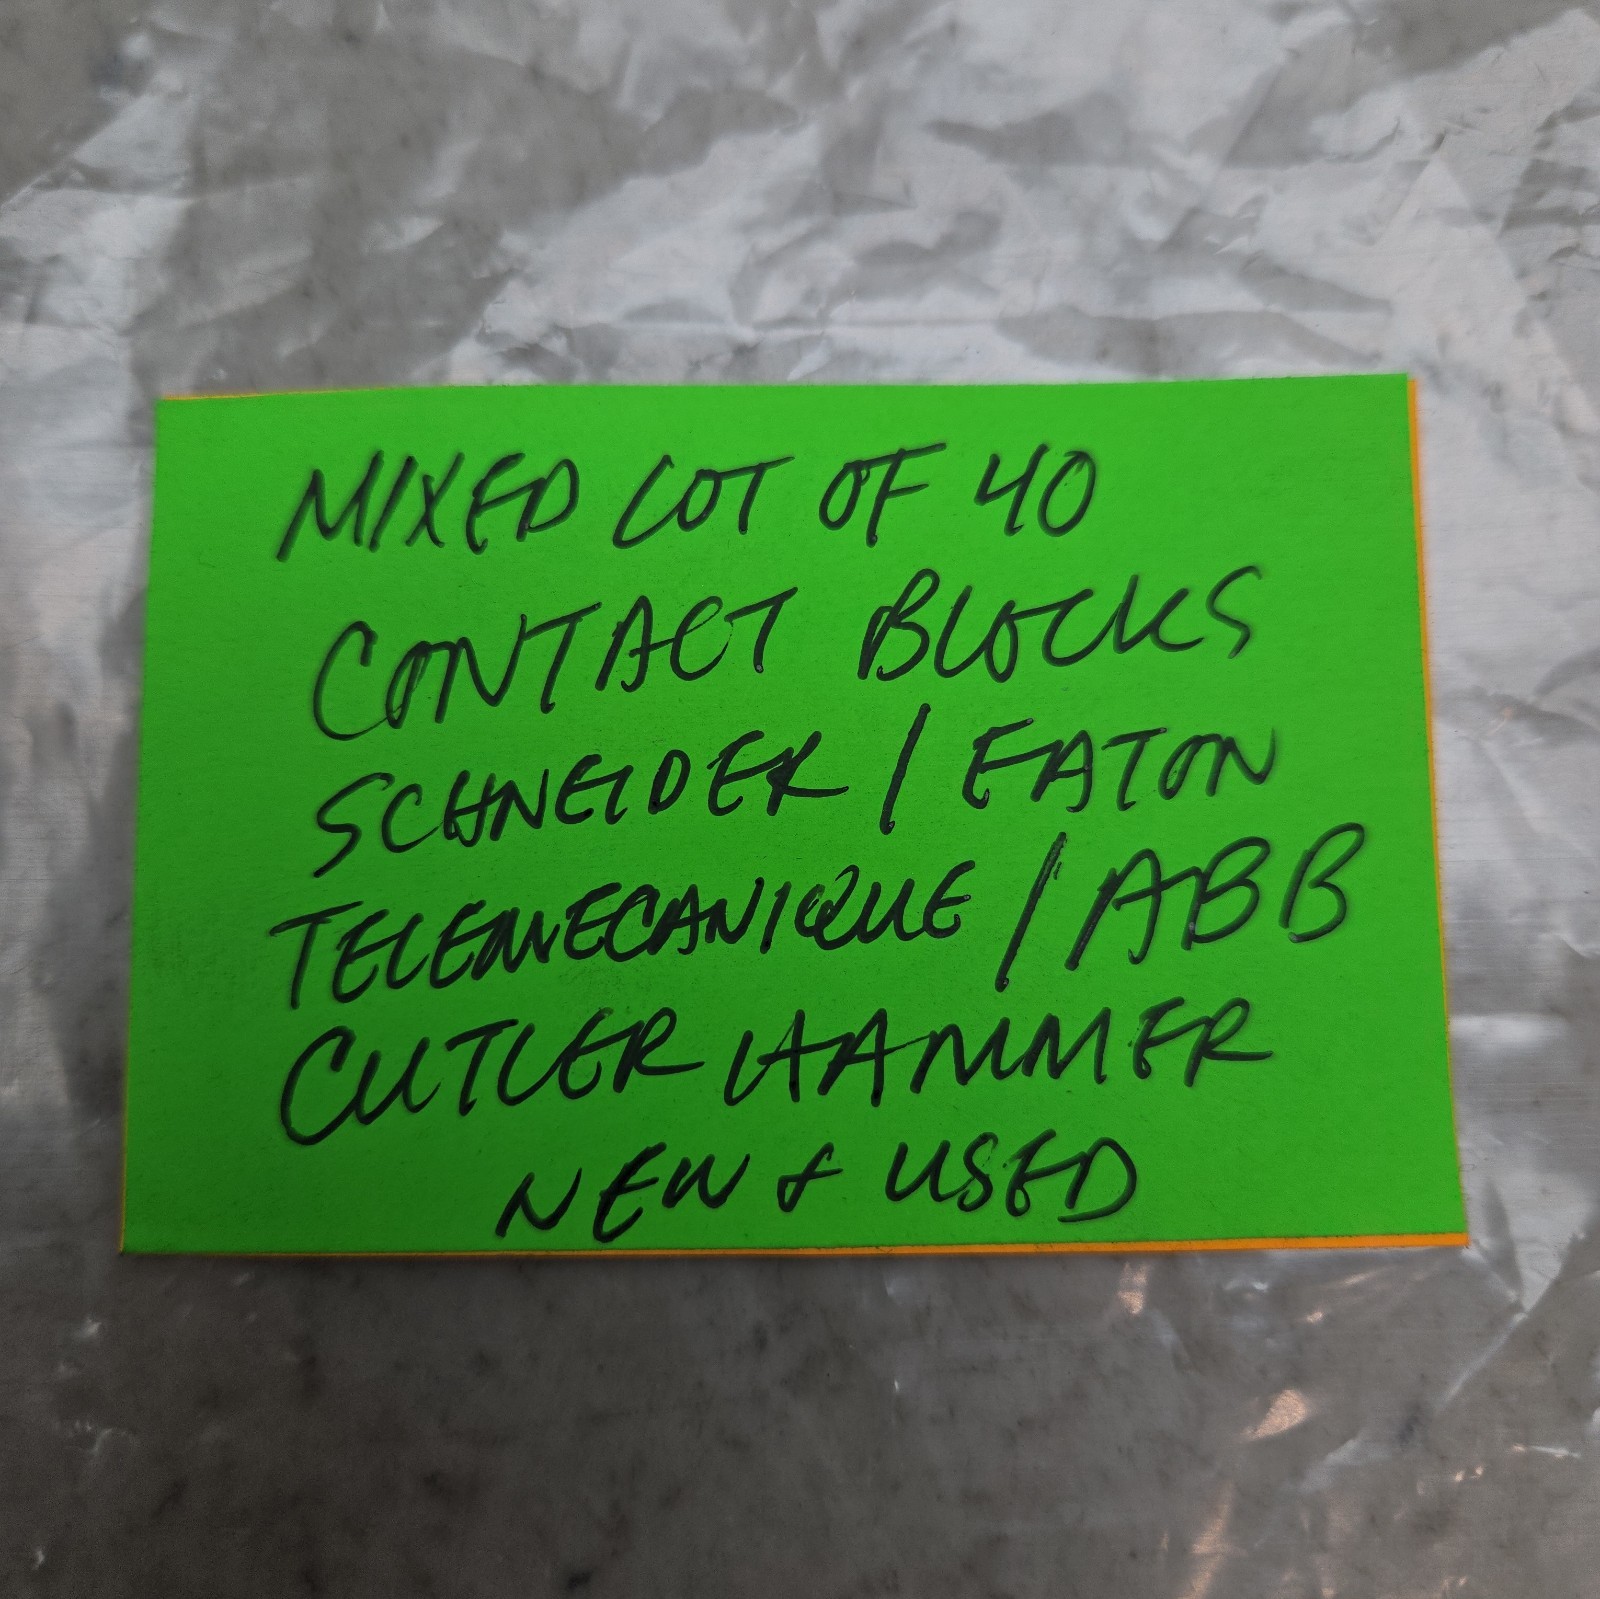 MIXED LOT OF 40
CONTACT BLOCKS
SCHNEIDER / EATON
TELEMECANIQUE / ABB
CUTLER HAMMER
NEW & USED